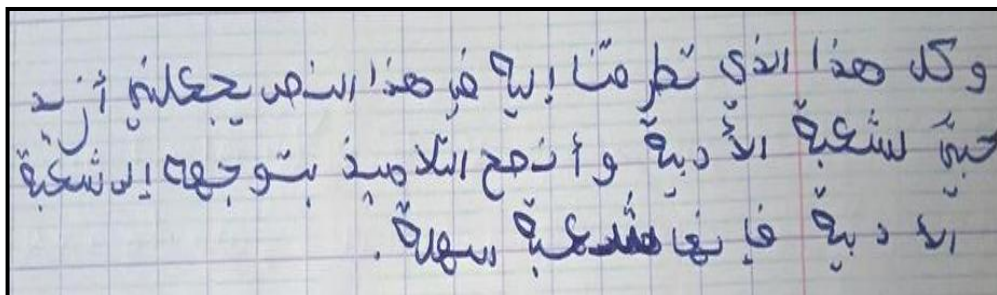 وكل هذا الذي تطرقنا إلية في هذا النص يجعلني أزيد
حبي لشعبة الأدبية وأنصح التلاميذ بتوجهه إلى شعبة
الادبية فإنها شعبة سهلة.